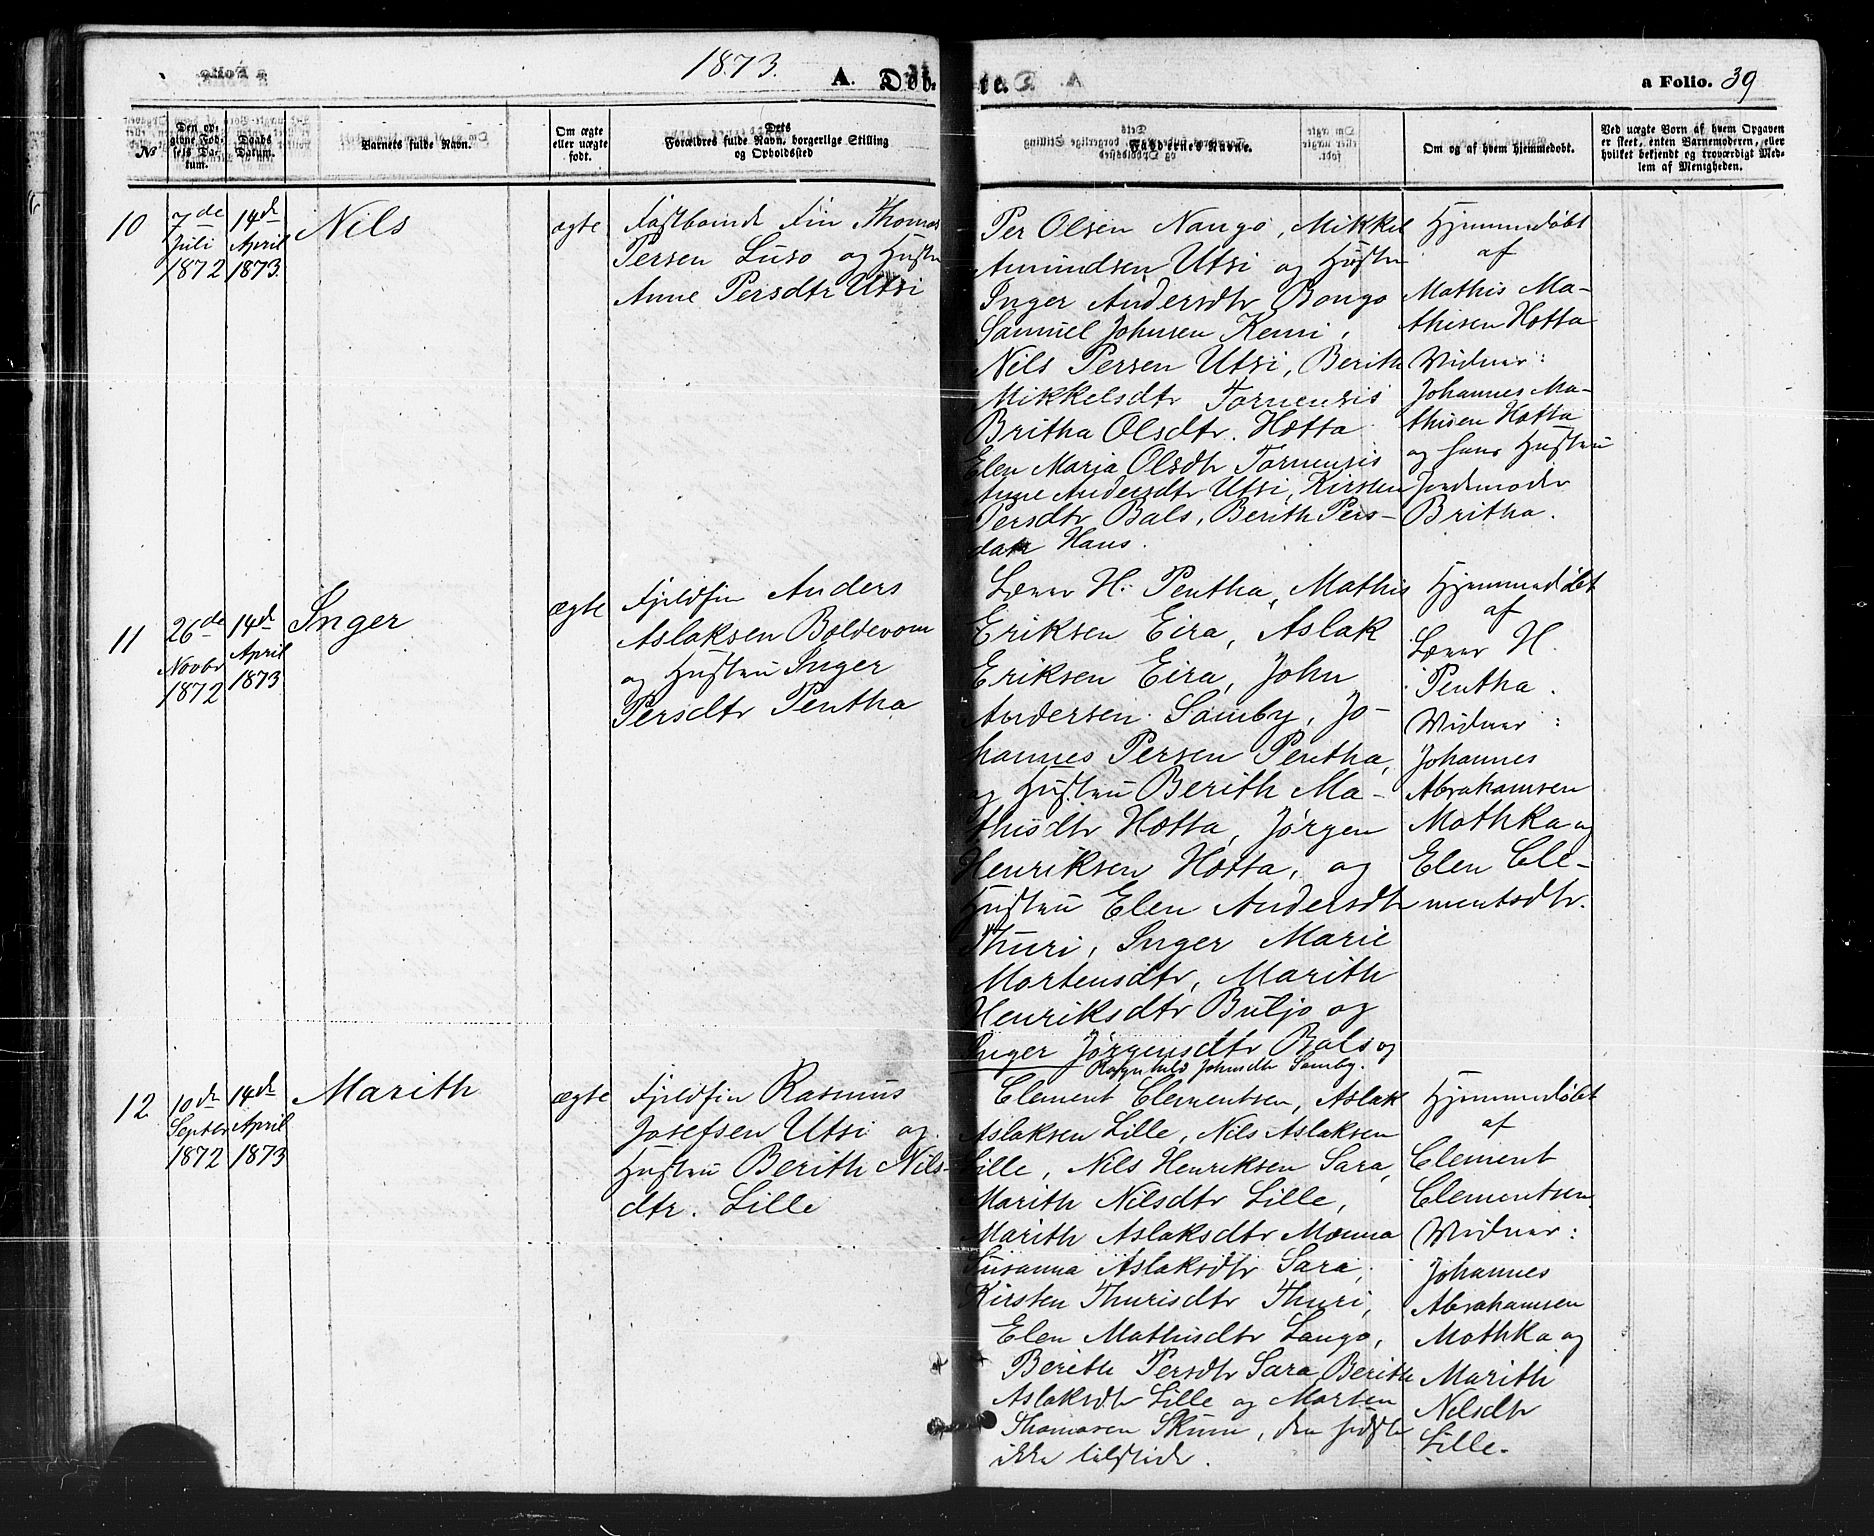 1873.
A. Døbte.
a Folio. 39
No
Den opgivne Fødsels Datum.
Daabs Datum.
Barnets fulde Navn.
Om ægte eller uægte født.
Forældres fulde Navn, borgerlige Stilling og Opholdssted
Faddernes Navne.
Om og af hvem hjemmedøbt.
Ved uægte Børn af hvem Opgaven er skeet, enten Barnemoderen, eller hvilket bekjendt og troværdigt Medlem af Menigheden.
10
7de
Juli
1872
14de
April
1873.
Nils
ægte
Fastboende Fin Thomas
Persen Luso og Hustru
Anne Persdtr Utsi
Per Olsen Nango, Mikkel
Amundsen Utsi og Hustru
Inger Andersdtr Bongo
Samuel Johnsen Kemi,
Nils Persen Utsi, Berith
Mikkelsdtr Tornensis
Britha Olsdtr. Hætta
Elen Maria Olsdtr Tornensis
Anne Andersdtr Utsi, Kirsten
Persdtr Bals, Berith Pers-
datr Hans.
Hjemmedøbt
af
Mathis Ma-
thisen Hætta
Vidner:
Johannes Ma-
thisen Hætta
og hans Hustru
Jordemoder
Britha.
11
26de
Novbr
1872
14de
April
1873
Inger
ægte
Fjeldfin Anders
Aslaksen Boldevom
og Hustru Inger
Persdtr Pentha
Lærer H. Pentha, Mathis
Eriksen Eira, Aslak
Eriksen Eira, John
Andersen Somby, Jo-
hannes Persen Pentha,
og Hustru Berith Ma-
thisdtr Hætta, Jørgen
Henriksen Hætta, og
Hustru Elen Andersdtr
Thuri, Inger Marie
Mortensdtr, Marith
Henriksdtr Buljo og
Inger Jørgensdtr Bals og
Ragnhild Johnsdtr Somby.
Hjemmedøbt
af
Lærer H.
Pentha.
Vidner:
Johannes
Abrahamsen
Mothka og
Elen Cle-
mentsdtr.
12
10de
Septbr
1872
14de
April
1873
Marith
ægte
Fjeldfin Rasmus
Josefsen Utsi og
Hustru Berith Nils-
dtr. Lille
Clement Clementsen, Aslak
Aslaksen Lille, Nils Aslaksen
Lille, Nils Henriksen Sara,
Marith Nilsdtr Lille,
Marith Aslaksdtr Mænna
Susanna Aslaksdtr Sara,
Kirsten Thurisdtr Thuri,
Elen Mathisdtr Lango,
Berith Persdtr Sara Berith
Aslaksdtr Lille og Morten
Thomasen Skum, den sidste
ikke tilstede.
Hjemmedøbt
af
Clement
Clementsen
Vidner:
Johannes
Abrahamsen
Mothka og
Marith
Nilsdtr
Lille.